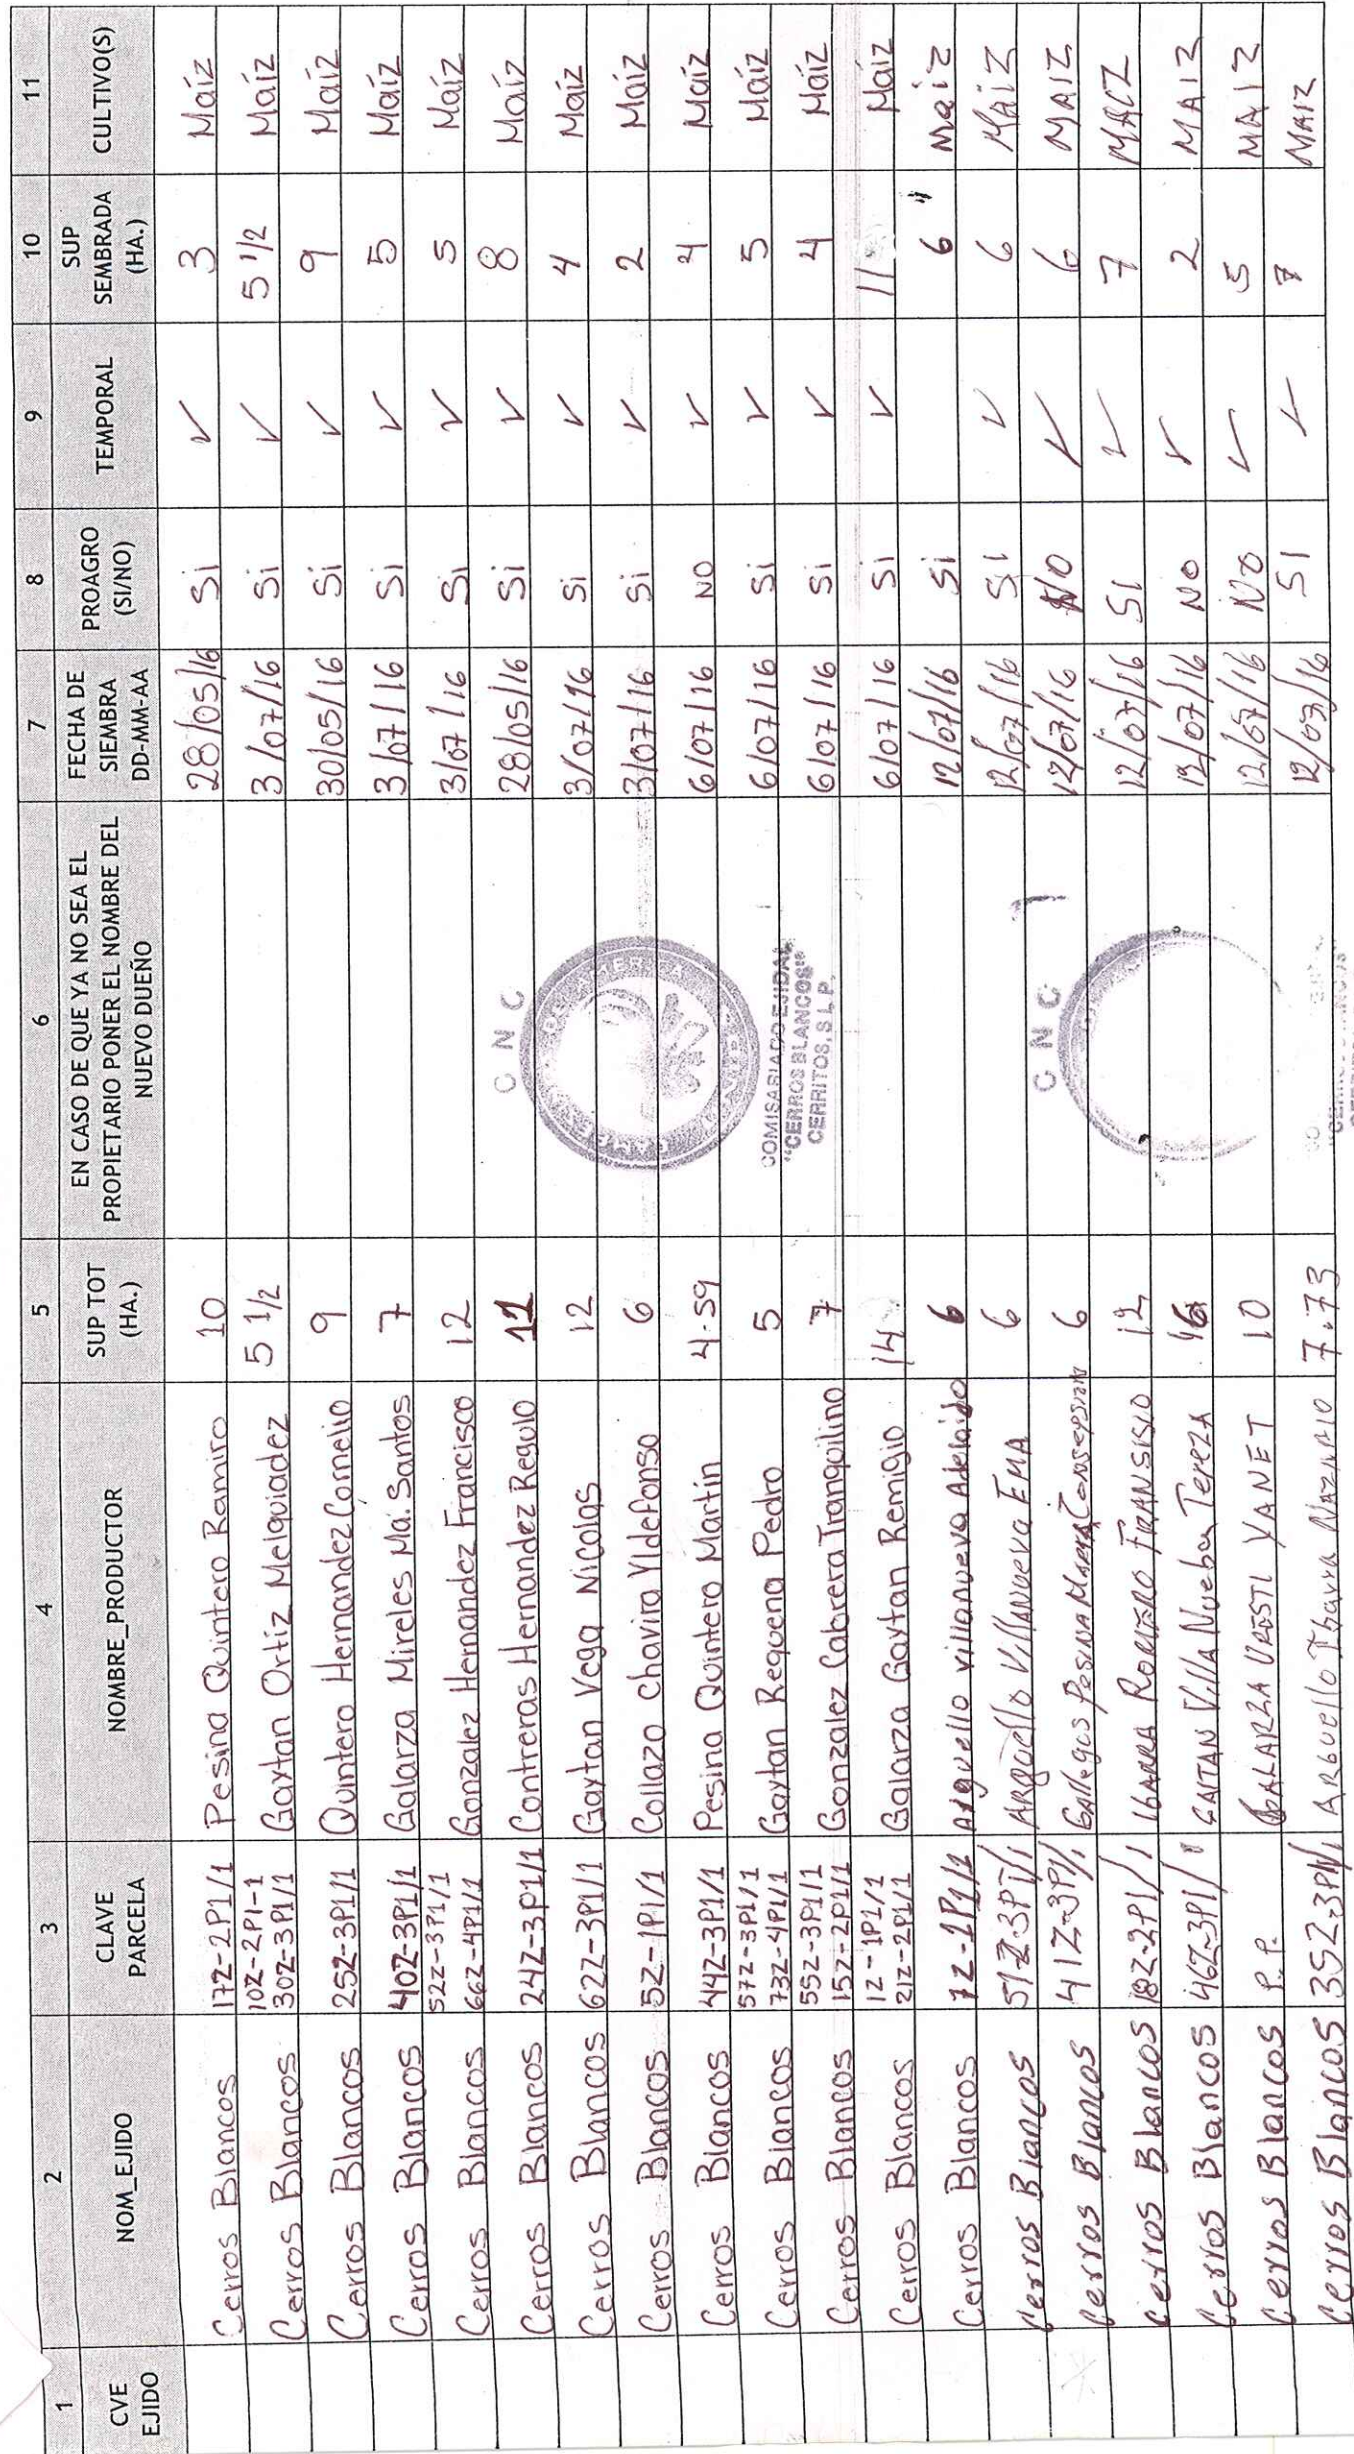 1 2 3 4 5 6 7 8 9 10 11
CVE EJIDO NOM_EJIDO CLAVE PARCELA NOMBRE_PRODUCTOR SUP TOT (HA.) EN CASO DE QUE YA NO SEA EL PROPIETARIO PONER EL NOMBRE DEL NUEVO DUEÑO FECHA DE SIEMBRA DD-MM-AA PROAGRO (SI/NO) TEMPORAL SUP SEMBRADA (HA.) CULTIVO(S)
Cerros Blancos 17Z-2P1/1 Pesina Quintero Ramiro 10 28/05/16 Si ✓ 3 Maíz
Cerros Blancos 10Z-2P1-1 30Z-3P1/1 Gaytan Ortiz Melquiadez 5 1/2 3/07/16 Si ✓ 5 1/2 Maíz
Cerros Blancos 25Z-3P1/1 Quintero Hernandez Cornelio 9 30/05/16 Si ✓ 9 Maíz
Cerros Blancos 40Z-3P1/1 Galarza Mireles Ma. Santos 7 3/07/16 Si ✓ 5 Maíz
Cerros Blancos 52Z-3P1/1 66Z-4P1/1 Gonzalez Hernandez Francisco 12 3/07/16 Si ✓ 5 Maíz
Cerros Blancos 24Z-3P1/1 Contreras Hernandez Regulo 11 28/05/16 Si ✓ 8 Maíz
Cerros Blancos 62Z-3P1/1 Gaytan Vega Nicolas 12 3/07/16 Si ✓ 4 Maíz
Cerros Blancos 5Z-1P1/1 Collazo Chavira Yldefonso 6 3/07/16 Si ✓ 2 Maíz
Cerros Blancos 44Z-3P1/1 Pesina Quintero Martin 4.59 6/07/16 NO ✓ 4 Maíz
Cerros Blancos 57Z-3P1/1 73Z-4P1/1 Gaytan Requena Pedro 5 6/07/16 Si ✓ 5 Maíz
Cerros Blancos 55Z-3P1/1 15Z-2P1/1 Gonzalez Cabrera Tranquilino 7 6/07/16 Si ✓ 4 Maíz
Cerros Blancos 1Z-1P1/1 21Z-2P1/1 Galarza Gaytan Remigio 14 6/07/16 Si ✓ 11 Maíz
Cerros Blancos 7Z-1P1/1 Arguello villanueva Adelaido 6 12/07/16 Si 6 maiz
Cerros Blancos 51Z-3P1/1 ARguello VillaNueva EMA 6 12/07/16 SI ✓ 6 MAiZ
Cerros Blancos 41Z-3P1/1 Gallegos PesiNa Maria 6 12/07/16 NO ✓ 6 MAIZ
Cerros Blancos 18Z-2P1/1 IbARRA ROMERO FRANSISIO 12 12/07/16 SI ✓ 7 MAIZ
Cerros Blancos 46Z-3P1/1 GAITAN VillA Nueba TEREZA 12/07/16 NO ✓ 2 MAIZ
Cerros Blancos P.P. GALARZA URESTI YANET 10 12/07/16 NO ✓ 5 MAIZ
Cerros Blancos 35Z-3P1/1 ARGuello Ibarra NAZARIO 7.73 12/07/16 SI ✓ 7 MAIZ
C N C
COMISARIADO EJIDAL
"CERROS BLANCOS"
CERRITOS, S.L.P.
C N C